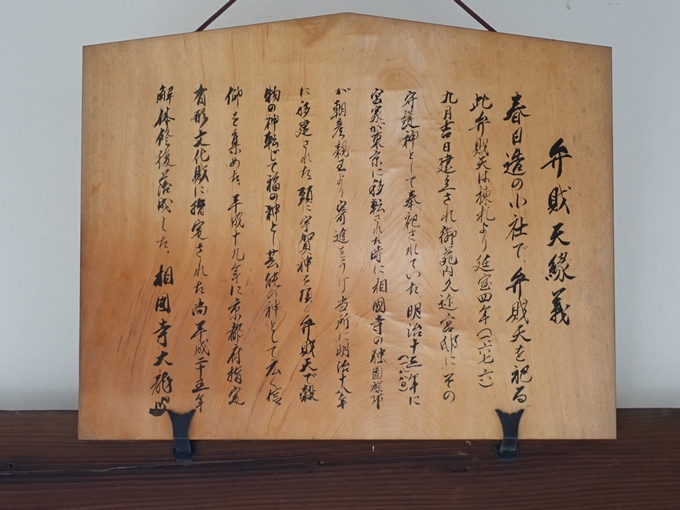 弁財天縁義
春日造の小社で、弁財天を祀る
此弁財天は棟札より延宝四年(一六七六)
九月吉日建立され御苑内久迩宮邸にその
守護神として奉祀されていた 明治十三年に(一八八〇)
宮家が東京に移転された時に相國寺の独園禅師
が朝彦親王より寄進をうけ当所に明治十八年
に移建された 頭に宇賀神を頂く弁財天で穀
物の神転じて福の神とし芸能の神として広く信
仰を集めた、平成十九年に京都府指定
有形文化財に指定された 尚 平成二十五年
解体修復落成した、 相國寺大龍